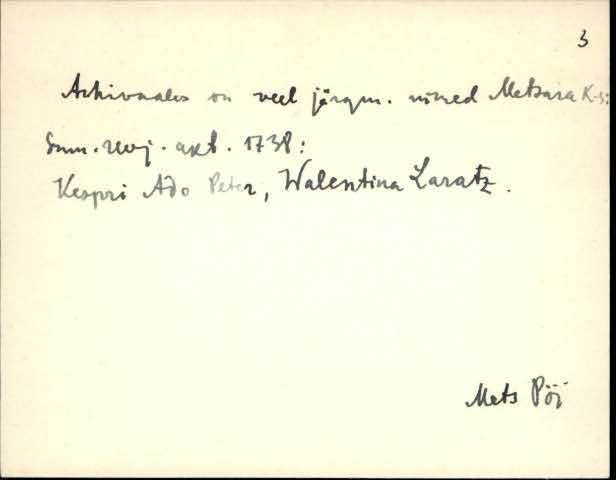 3
Arhivaales on veel järgm. nimed Metsara K-s:
Summ. rev. akt. 1738:
Kespri Ado Peter, Walentina Laratz.
Mets Pöi